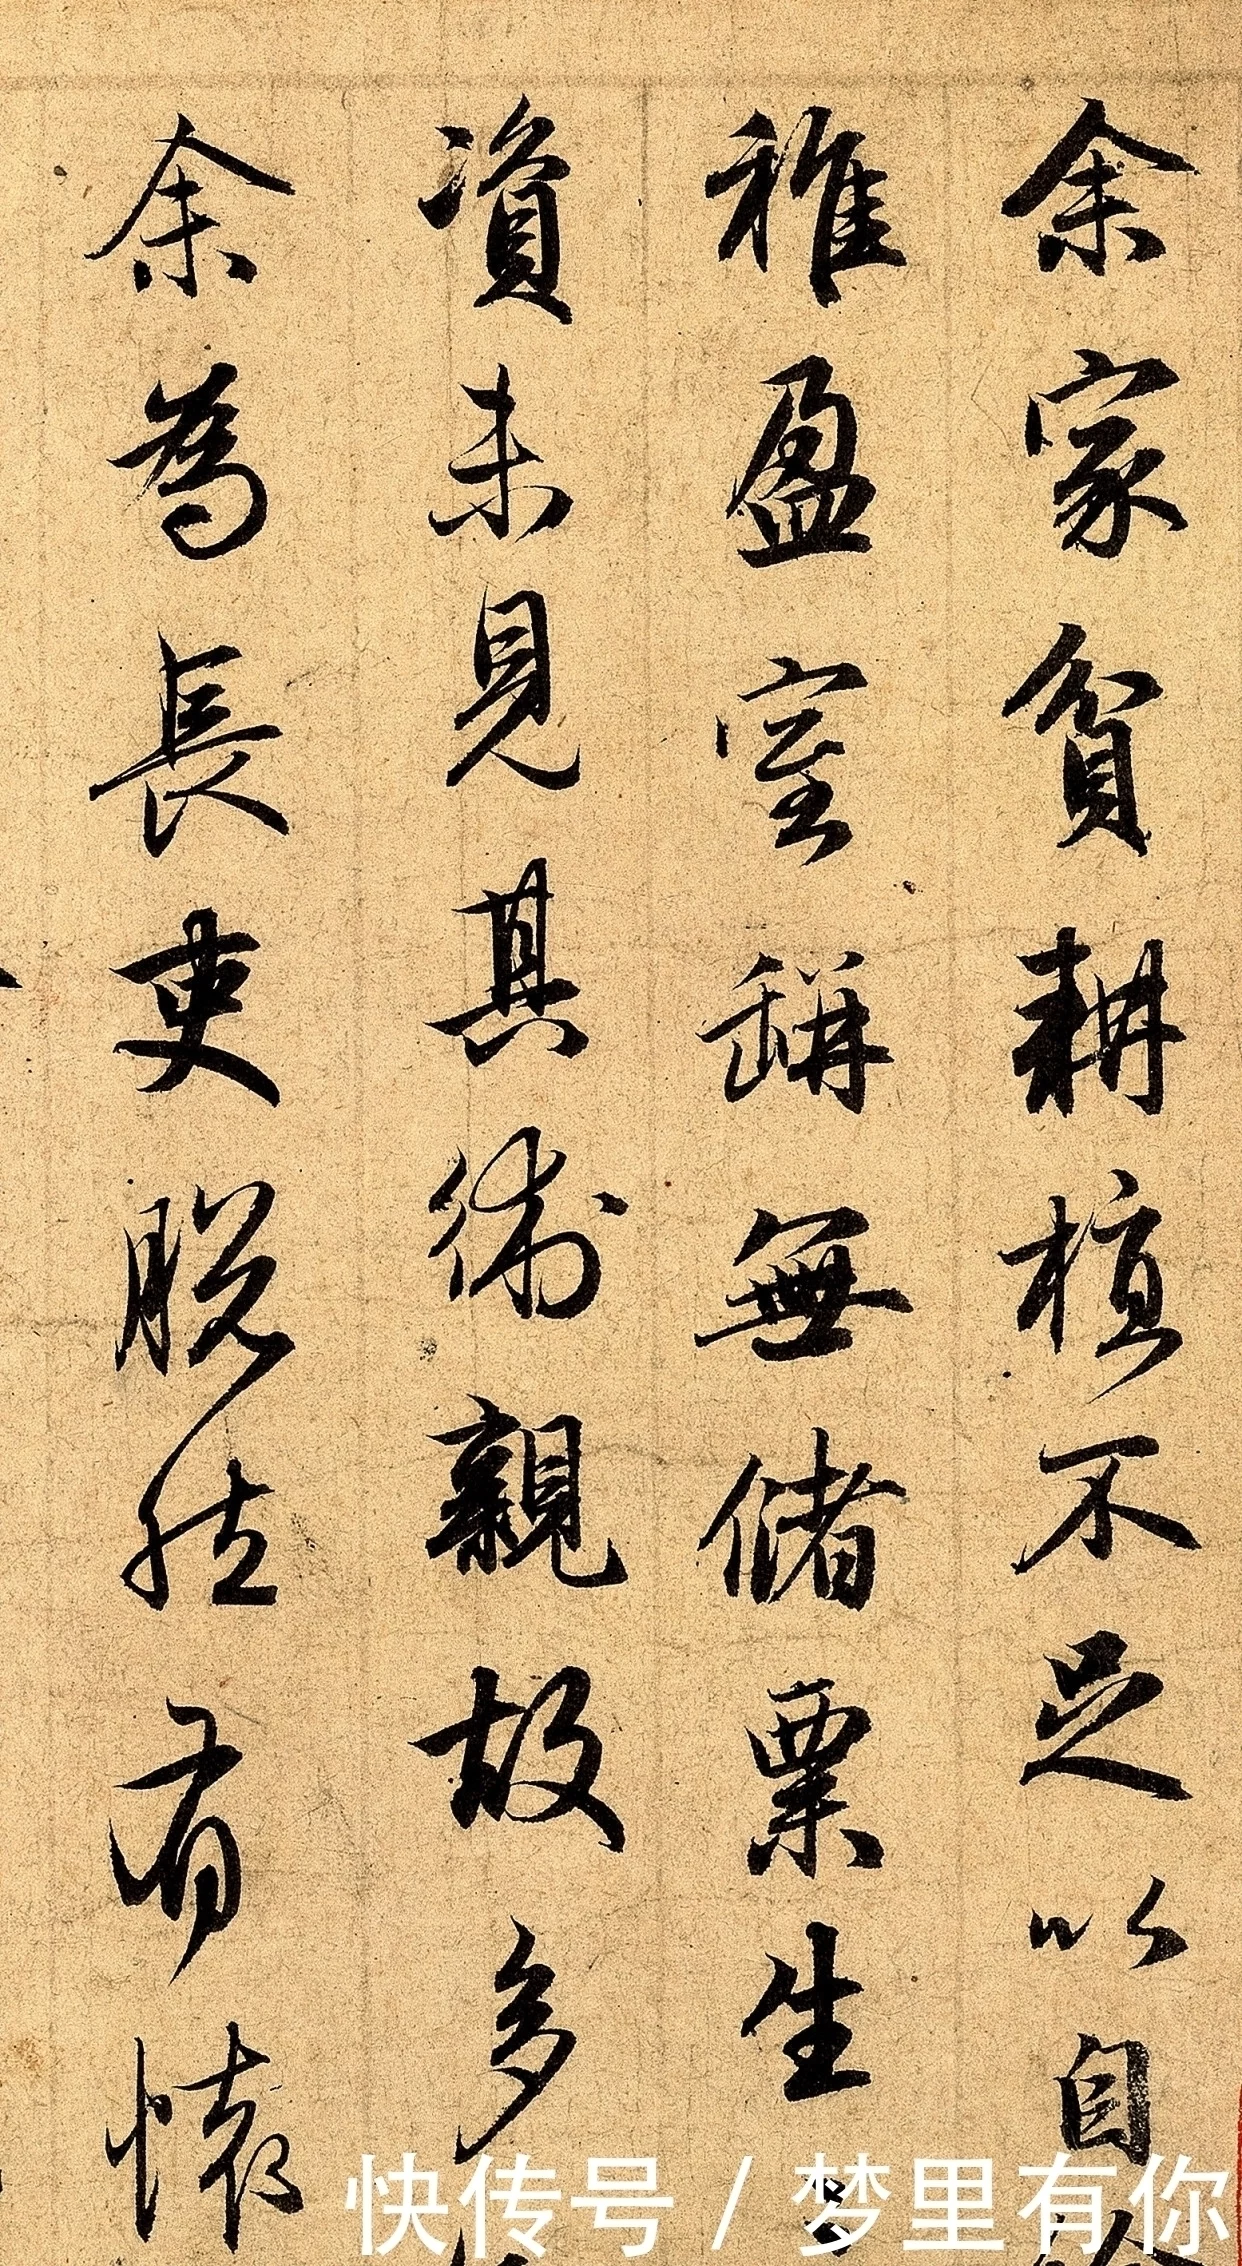 余家貧耕植不足以自
稚盈室缾無儲粟生
資未見其術親故多
余為長吏脱然有懷
快传号 / 梦里有你